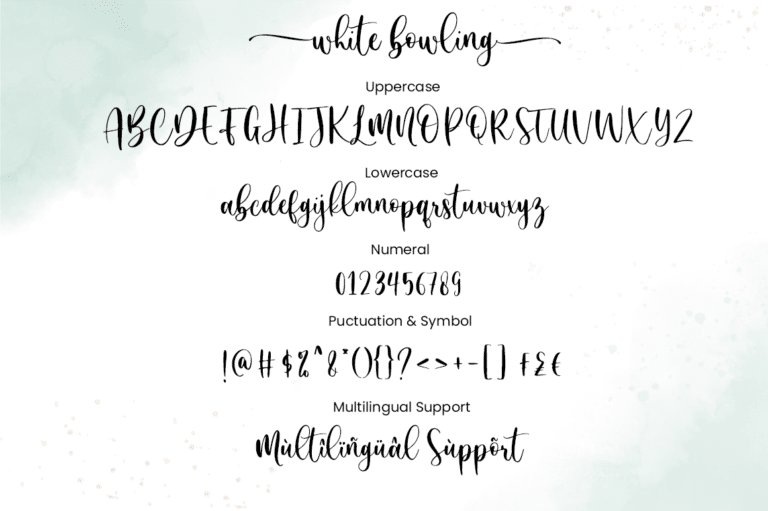 white bowling
Uppercase
ABCDEFGHIJKLMNOPQRSTUVWXYZ
Lowercase
abcdefgijkllmnopqrstuvwxyz
Numeral
0123456789
Puctuation & Symbol
!@#$%^&*(){}?<>+-[] ₣£€
Multilingual Support
Mùltîlïñgüâl Sùppõrt